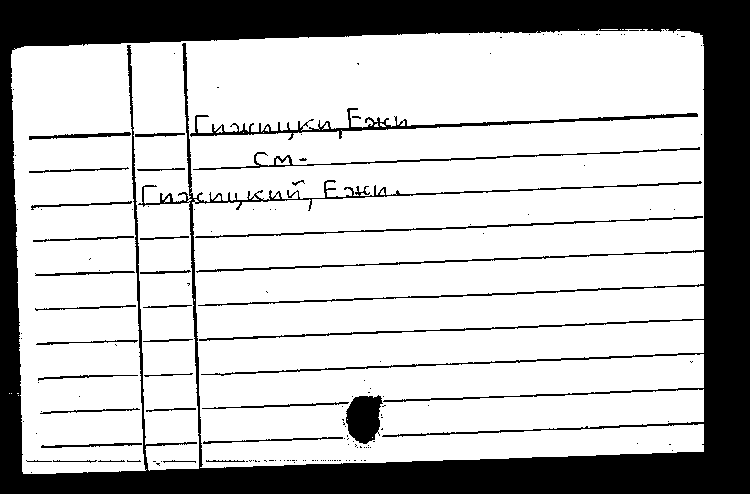 Гижицки, Ежи
см.
Гижицкий, Ежи.